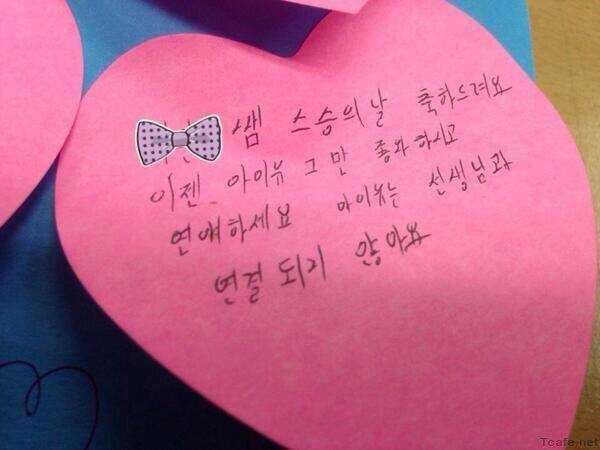 쌤 스승의날 축하드려요
이젠 아이유 그만 좋와하시고
연애하세요 아이유는 선생님과
연결 되지 않아요
Tcafe.net